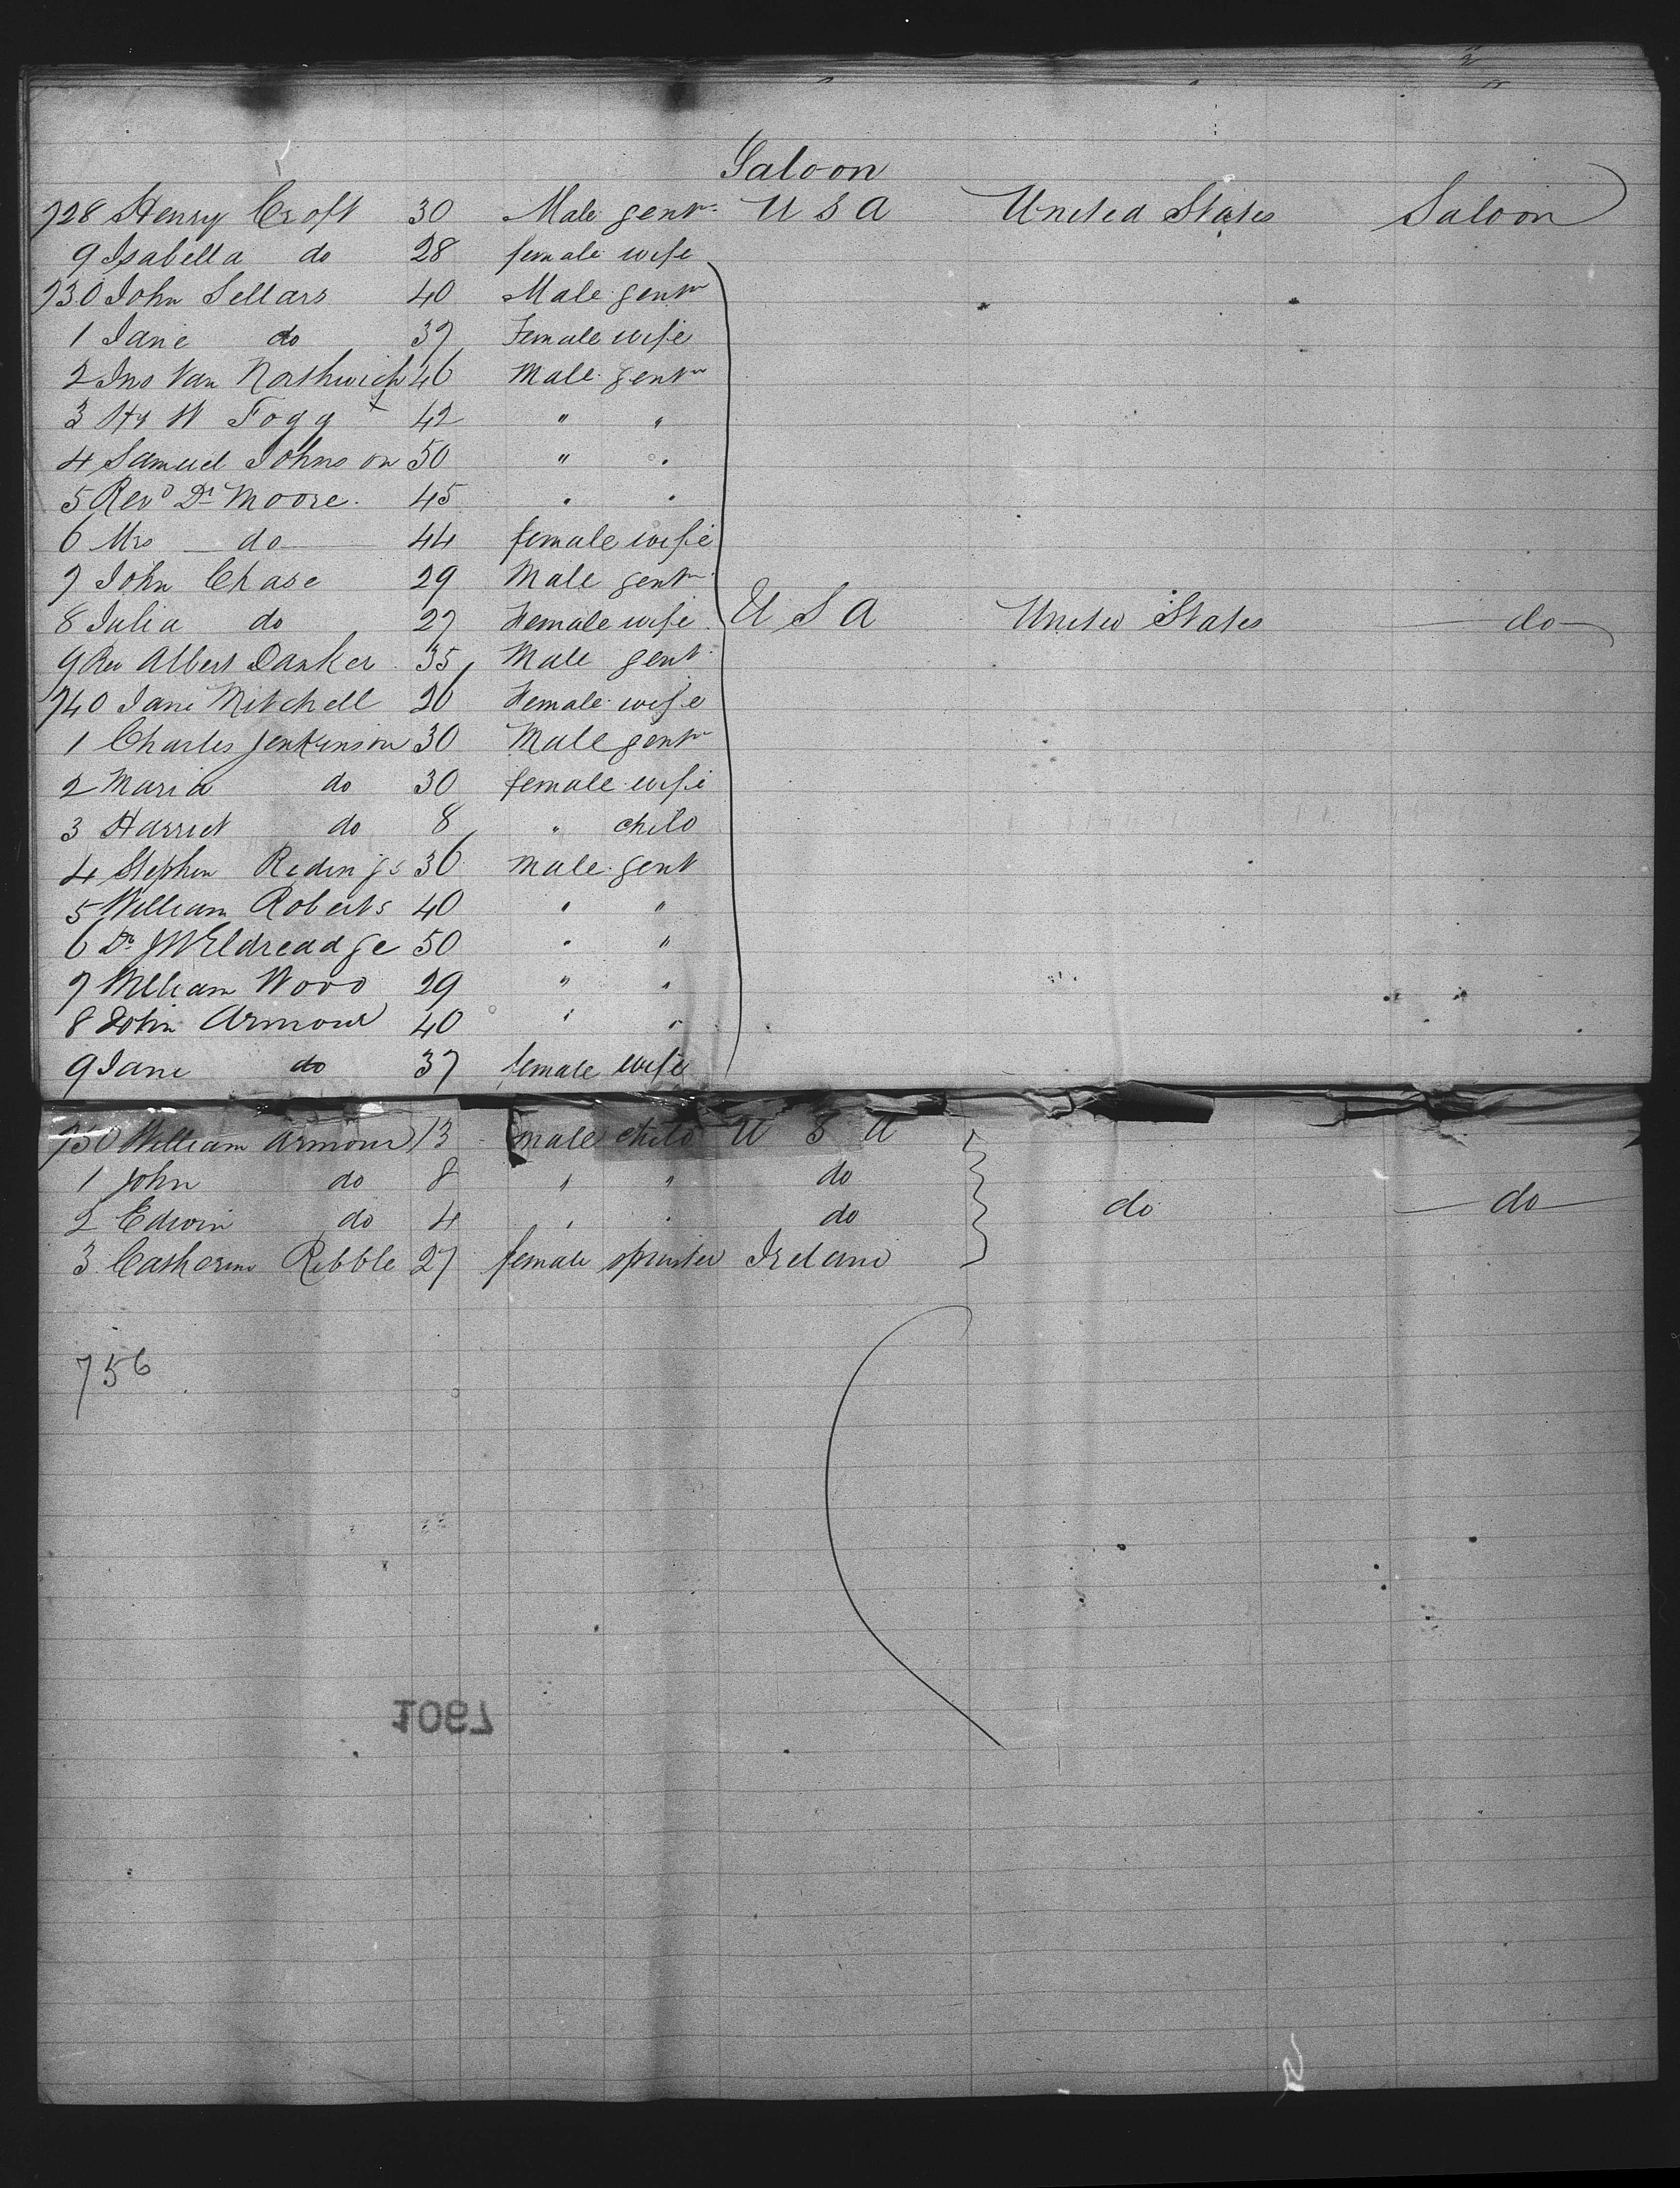 Saloon
728 Henry Croft 30 Male gentn U S A United States Saloon
9 Isabella do 28 female wife
730 John Sellars 40 Male gentn
1 Jane do 37 Female wife
2 Jno Van Northwich 46 Male gentn
3 Hy W Fogg 42 " "
4 Samuel Johnson 50 " "
5 Revd Dr Moore 45 " "
6 Mrs do 44 female wife
7 John Chase 29 Male gentn
8 Julia do 27 Female wife U S A United States do
9 Rev Albert Danker 35 Male gent
740 Jane Mitchell 26 Female wife
1 Charles Jenkinson 30 Male gentn
2 Maria do 30 female wife
3 Harriet do 8 " child
4 Stephen Redings 36 Male gent
5 William Roberts 40 " "
6 Dr J W Eldreadge 50 " "
7 William Wood 29 " "
8 John Armour 40 " "
9 Jane do 37 female wife
750 William Armour 13 male child U S A
1 John do 8 " " do
2 Edwin do 4 " " do do do
3 Catherine Ribble 27 female spinster Ireland
756
1067